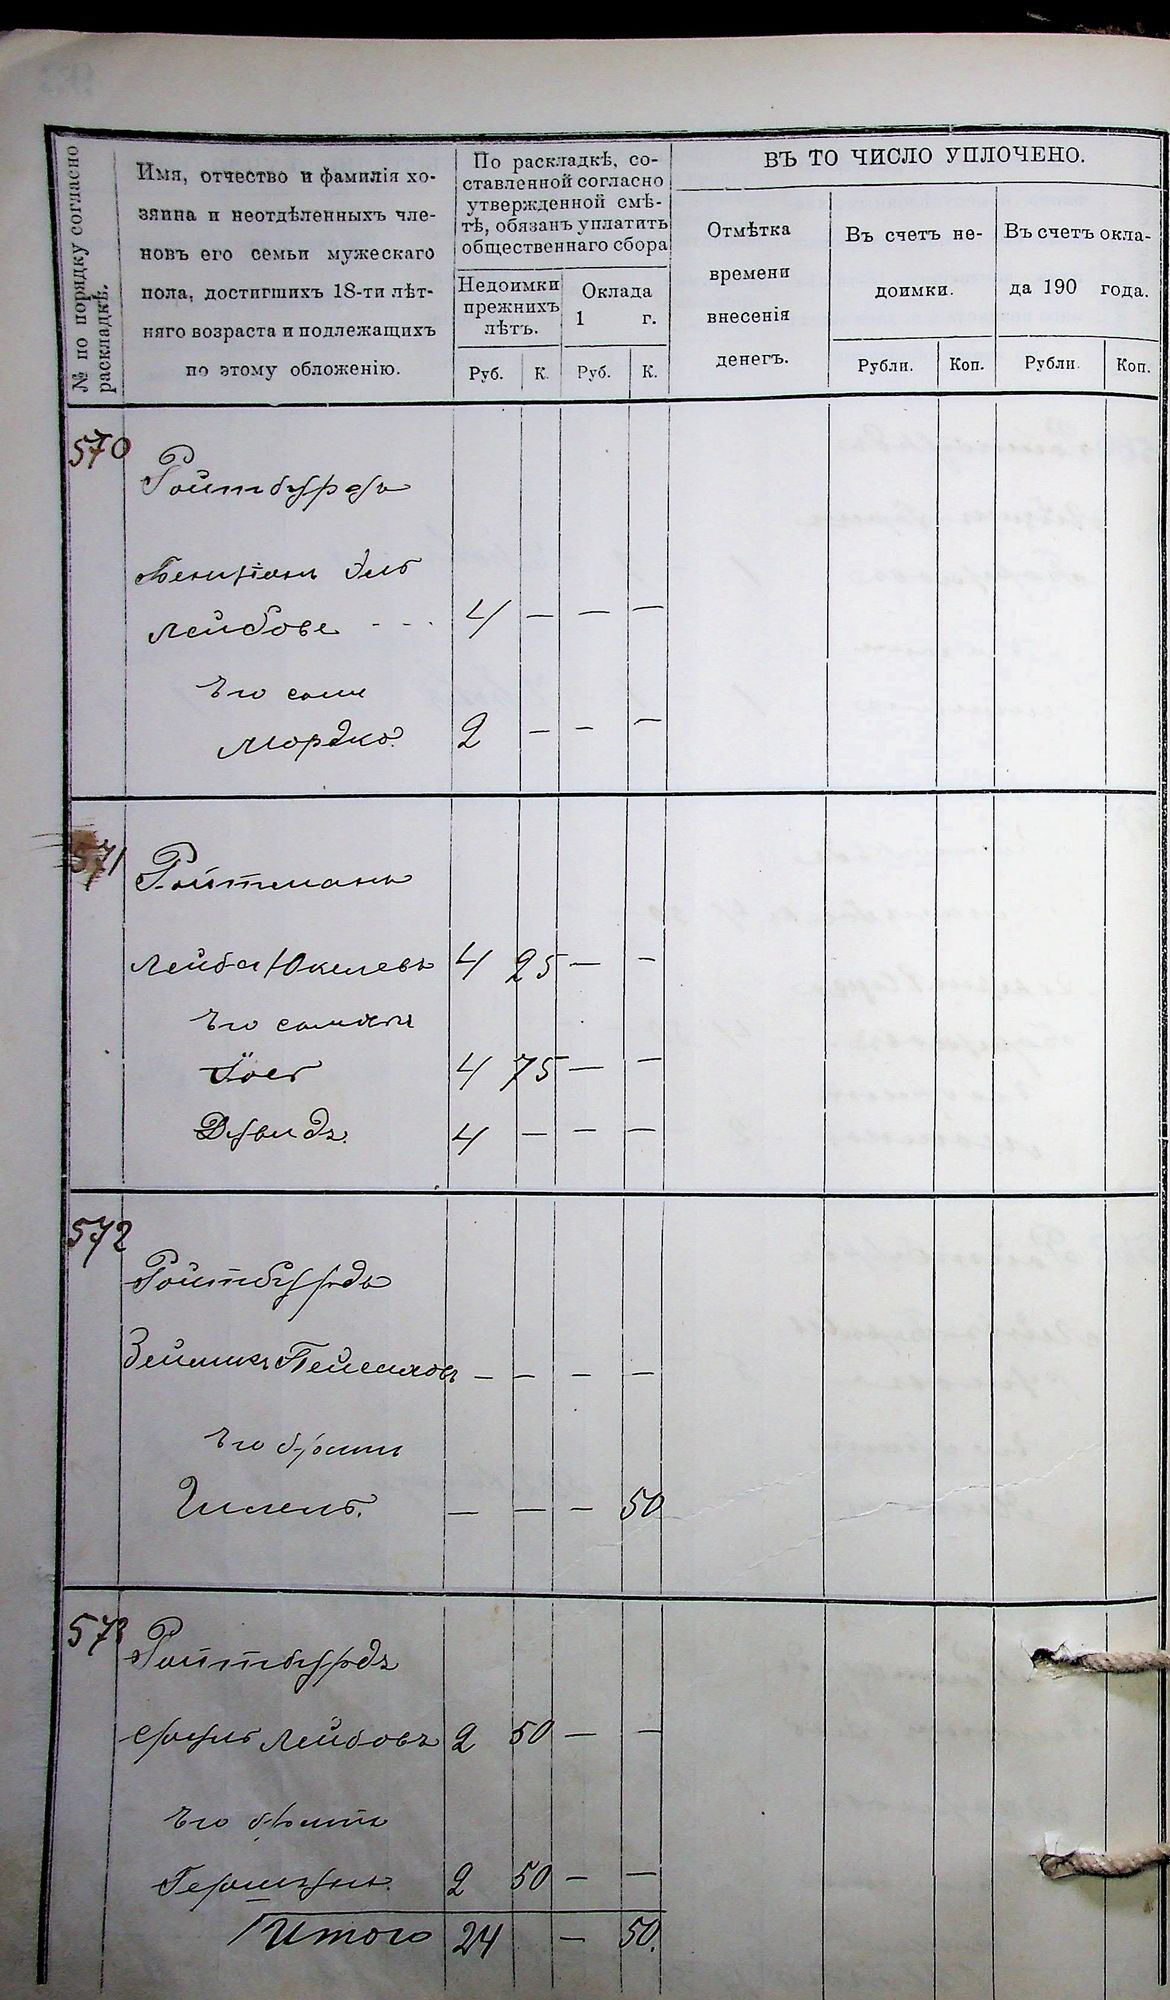 № по порядку согласно
раскладкѣ.
Имя, отчество и фамилія хо-
зяина и неотдѣленныхъ чле-
новъ его семьи мужескаго
пола, достигшихъ 18-ти лѣт-
няго возраста и подлежащихъ
по этому обложенію.
По раскладкѣ, со-
ставленной согласно
утвержденной смѣ-
тѣ, обязанъ уплатить
общественнаго сбора
Недоимки
прежнихъ
лѣтъ.
Оклада
1 г.
Руб. К. Руб. К.
ВЪ ТО ЧИСЛО УПЛОЧЕНО.
Отмѣтка
времени
внесенія
денегъ.
Въ счетъ не-
доимки.
Въ счетъ окла-
да 190 года.
Рубли. Коп. Рубли. Коп.
570
Ройтбурдъ
Бенціонъ
Лейбовъ - - - 4 — — —
Его сынъ
Мордко. 2 — — —
571
Ройтманъ
Лейба Юкелевъ 4 25 — —
Его сыновья
4 75 — —
Дувидъ. 4 — — —
572
Ройтбурдъ
Зейликъ Пейсаховъ — — — —
Его братъ
— — — 50
573
Ройтбурдъ
Сруль Лейбовъ 2 50 — —
Его братъ
Гершунъ. 2 50 — —
Итого 24 — 50.